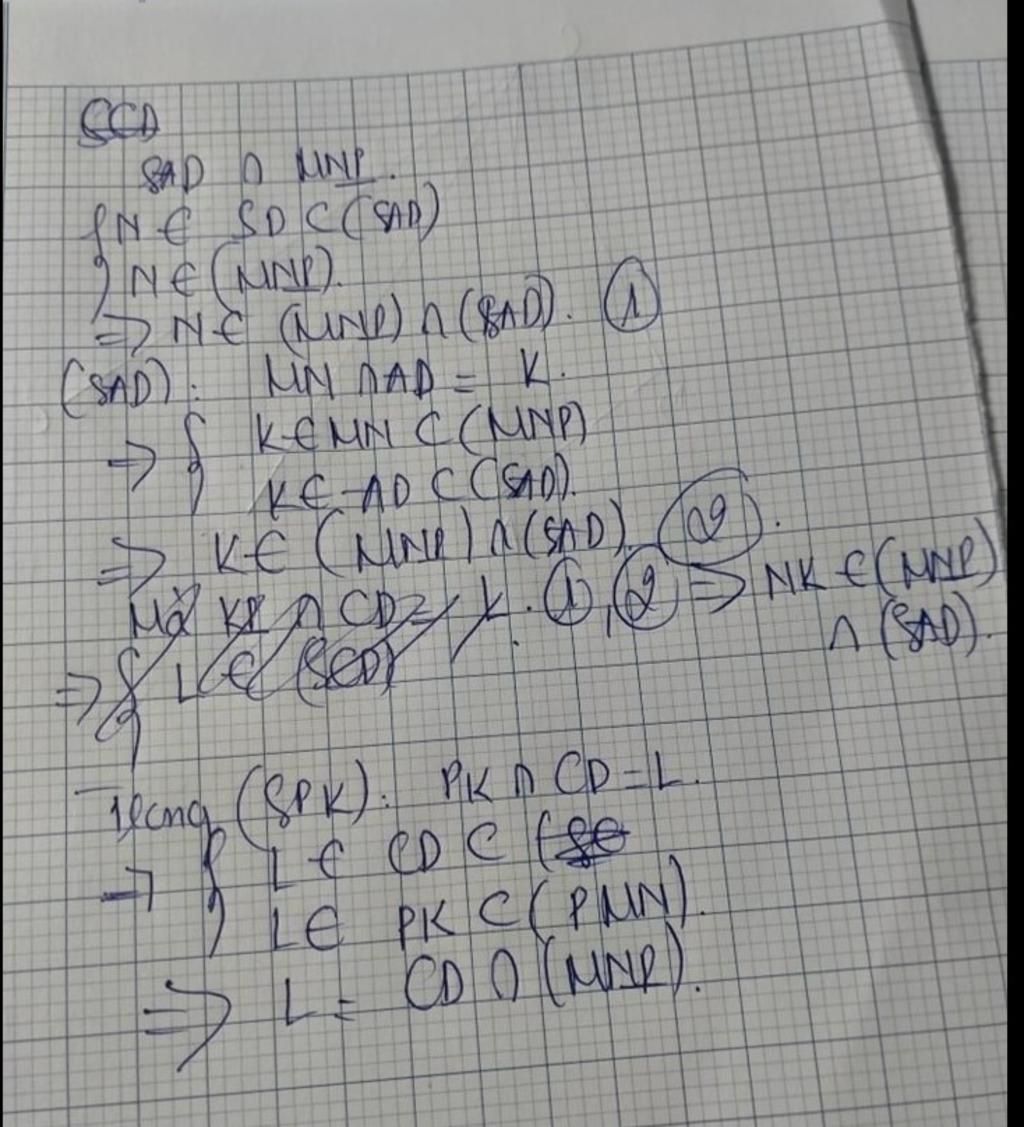 SCD
SAD ∩ MNP.
{ N ∈ SD ⊂ (SAD)
N ∈ (MNP).
=> N ∈ (MNP) ∩ (SAD). ①
(SAD): MN ∩ AD = K.
=> { K ∈ MN ⊂ (MNP)
K ∈ AD ⊂ (SAD).
=> K ∈ (MNP) ∩ (SAD). ②.
Mà KP ∩ CD = K. ①, ② => NK ∈ (MNP)
∩ (SAD).
=> { L ∈ (SCD)
Trong (SPK): PK ∩ CD = L.
=> { L ∈ CD ⊂ (SC
L ∈ PK ⊂ (PMN).
=> L = CD ∩ (MNP).